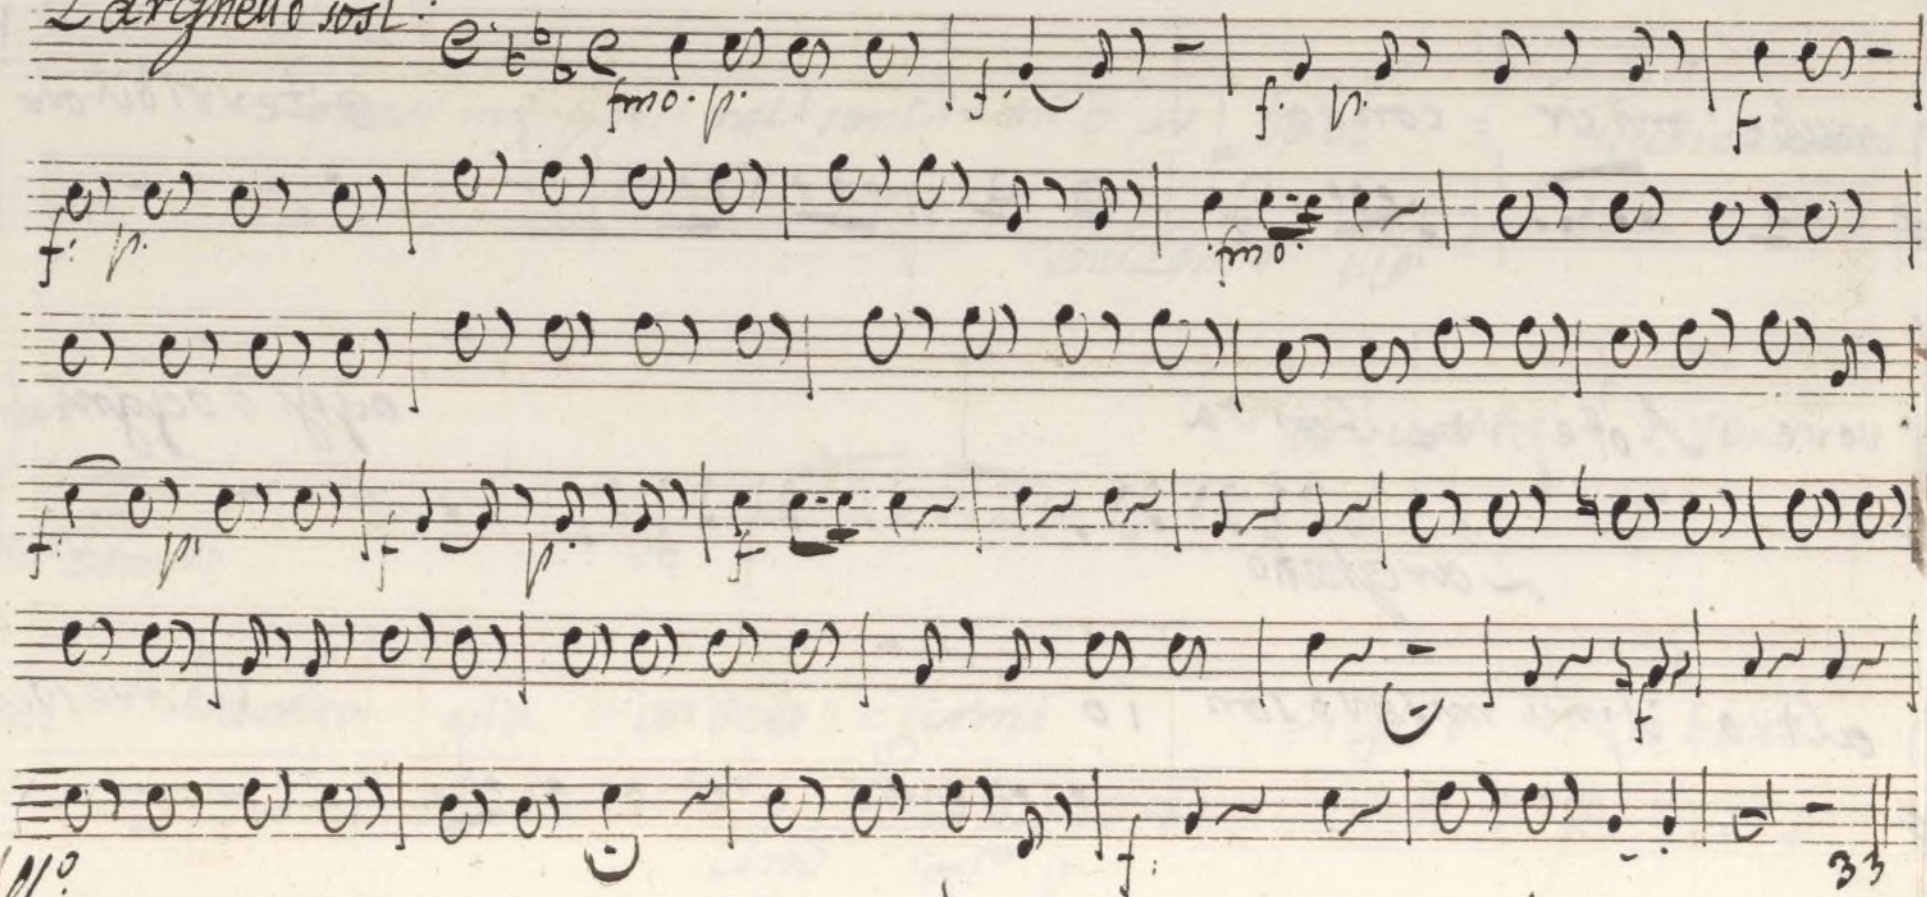 Larghetto sost:
fmo. p. f. f. p. f
f: p. fmo.
f: p. f p. f
f
f:
No. 33